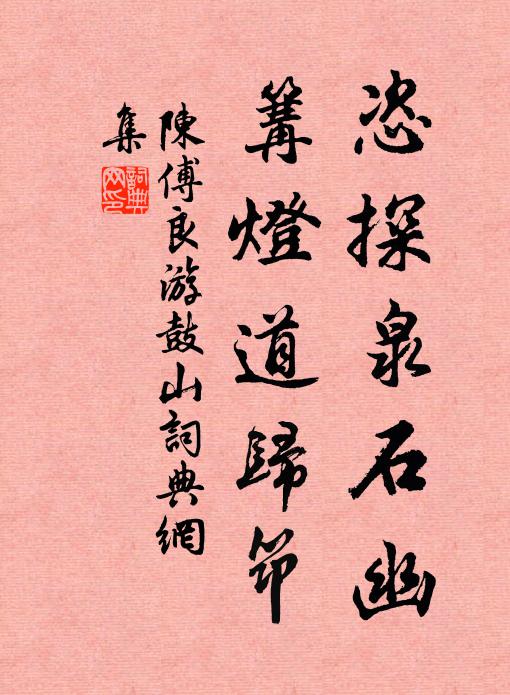 恣探泉石幽
篝燈道歸笻
陳傅良游鼓山詞典網
集
詞典网印